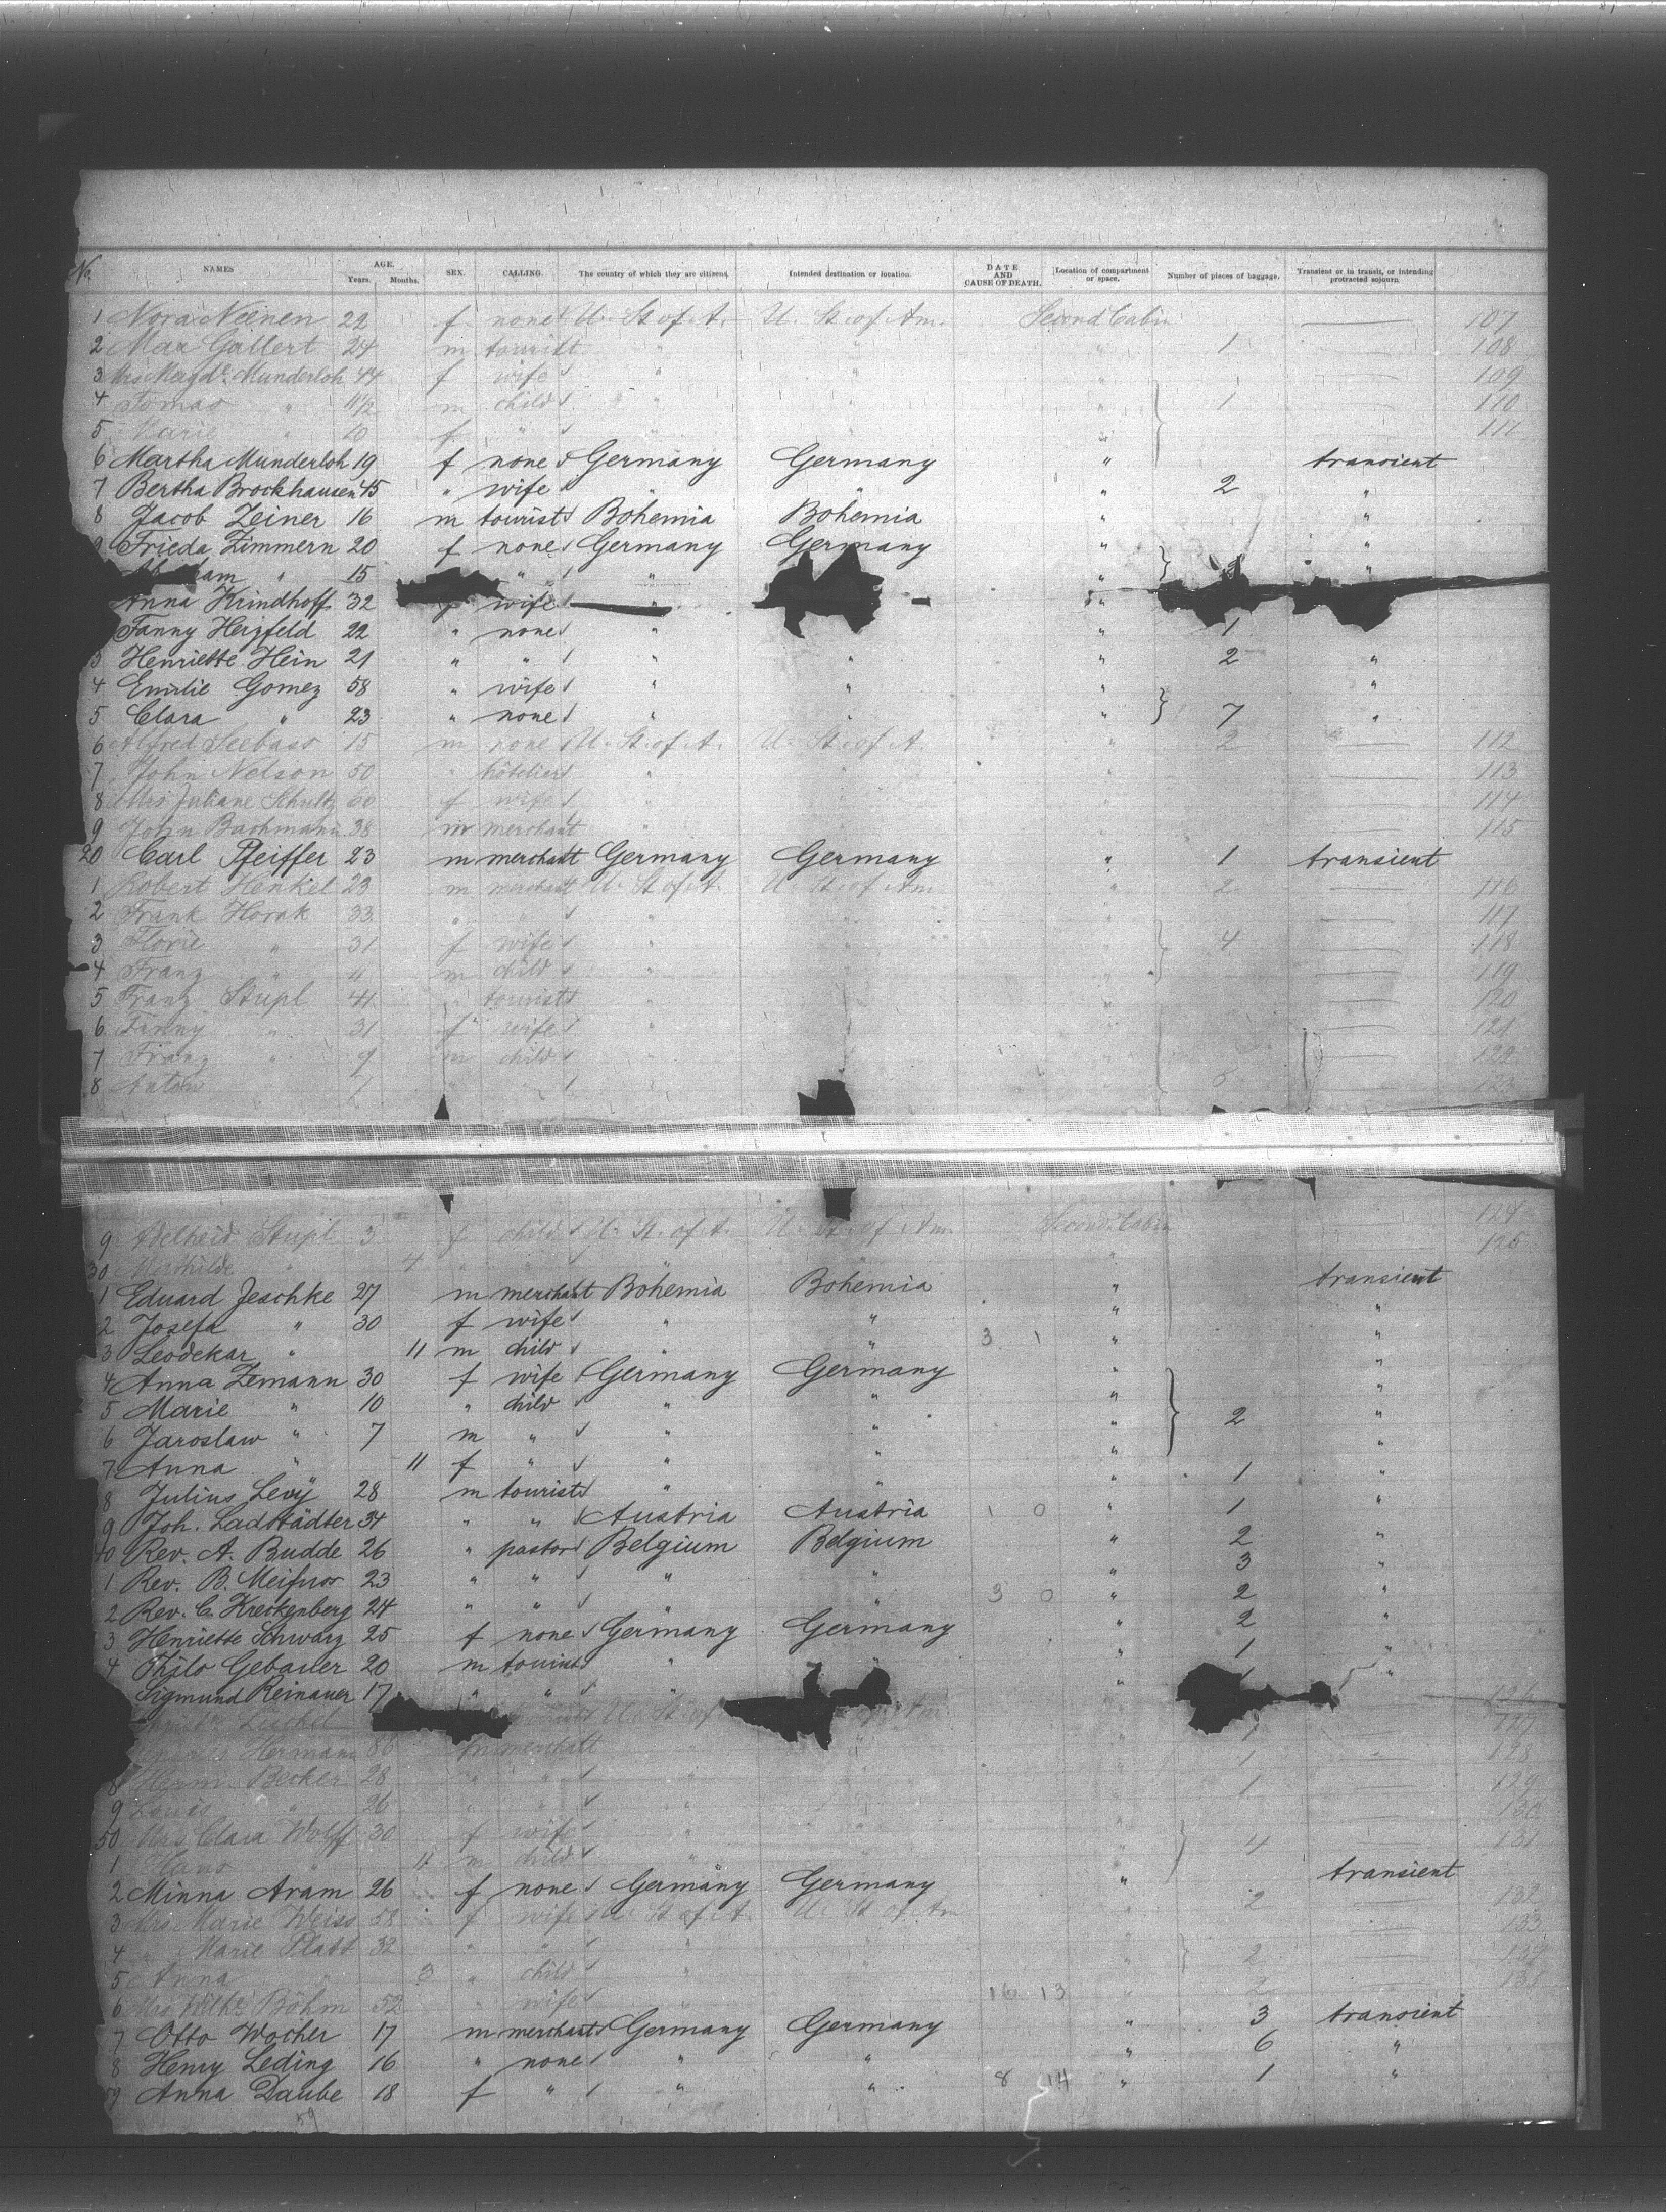 No. NAMES AGE. Years. Months. SEX. CALLING. The country of which they are citizens. Intended destination or location. DATE AND CAUSE OF DEATH. Location of compartment or space. Number of pieces of baggage. Transient or in transit, or intending protracted sojourn.
1 Nora Neenen 22 f none U. St of A. U. St. of Am. Second Cabin 107
2 Max Gallert 24 m tourist " " " 1 108
3 Mrs Magd. Munderloh 44 f wife " " " 109
4 Tomas " 11/2 m child " " " 1 110
5 Marie " 10 f " " " " 111
6 Martha Munderloh 19 f none Germany Germany " transient
7 Bertha Brockhausen 45 " wife " " " 2 "
8 Jacob Zeiner 16 m tourist Bohemia Bohemia " "
9 Frieda Zimmern 20 f none Germany Germany " "
ham " 15 " " " "
Anna Krindhoff 32 wife " "
Fanny Herzfeld 22 " none " " 1
3 Henriette Hein 21 " " " " " 2 "
4 Emilie Gomez 58 " wife " " " "
5 Clara " 23 " none " " " 7 "
6 Alfred Seebass 15 m none U. St. of A. U. St. of A. " 2 112
7 John Nelson 50 " hôtelier " " " 113
8 Mrs Juliane Schultz 60 f wife " " " 114
9 John Bachmann 38 m merchant " " " 115
20 Carl Pfeiffer 23 m merchant Germany Germany " 1 transient
1 Robert Henkel 23 m merchant U. St of A. U. St. of Am " 2 116
2 Frank Horak 33 " " " " " 117
3 Florie " 31 f wife " " " 4 118
4 Franz " 4 m child " " " 119
5 Franz Stupl 41 " tourist " " " 120
6 Fanny " 31 f wife " " " 121
7 Franz " 9 m child " " " 122
8 Anton 7 " " 123
9 Adelheid Stupl 3 f child U. St. of A. U. St. of Am. Second Cabin 124
30 Mathilde " 4 " " " " " 125
1 Eduard Jeschke 27 m merchant Bohemia Bohemia " transient
2 Josefa " 30 f wife " " " "
3 Leodekar " 11 m child " " 3 1 " "
4 Anna Zemann 30 f wife Germany Germany " "
5 Marie " 10 " child " " " "
6 Jaroslaw " 7 m " " " " 2 "
7 Anna " 11 f " " " " "
8 Julius Levÿ 28 m tourist " " " 1 "
9 Joh. Ladstädter 34 " " Austria Austria 1 0 " 1 "
40 Rev. A. Budde 26 " pastor Belgium Belgium " 2 "
1 Rev. B. Meifuss 23 " " " " " 3 "
2 Rev. C. Kreckenberg 24 " " " " 3 0 " 2 "
3 Henriette Schwarz 25 f none Germany Germany " 2 "
4 Thilo Gebauer 20 m tourist " " " 1 "
Sigmund Reinauer 17 " " " "
Luchel U. St of 126
Hermann 36 m merchant " " " 1 127
8 Herm. Becker 28 " " " " " 1 128
9 Louis " 26 " " " " " 1 129
50 Mrs Clara Wolff 30 f wife " " " 130
1 Hans " 11 m child " " " 4 131
2 Minna Aram 26 f none Germany Germany " transient
3 Mrs Marie Weiss 58 f wife U. St of A. U. St of Am " 2 132
4 " Marie Platt 32 " " " " " 133
5 Anna " 3 " child " " " 2 134
6 Mrs Wilh. Böhm 52 " wife " " 16 13 " 2 135
7 Otto Wocher 17 m merchant Germany Germany " 3 transient
8 Henry Leding 16 " none " " " 6 "
59 Anna Daube 18 f " " " 8 14 " 1 "
59